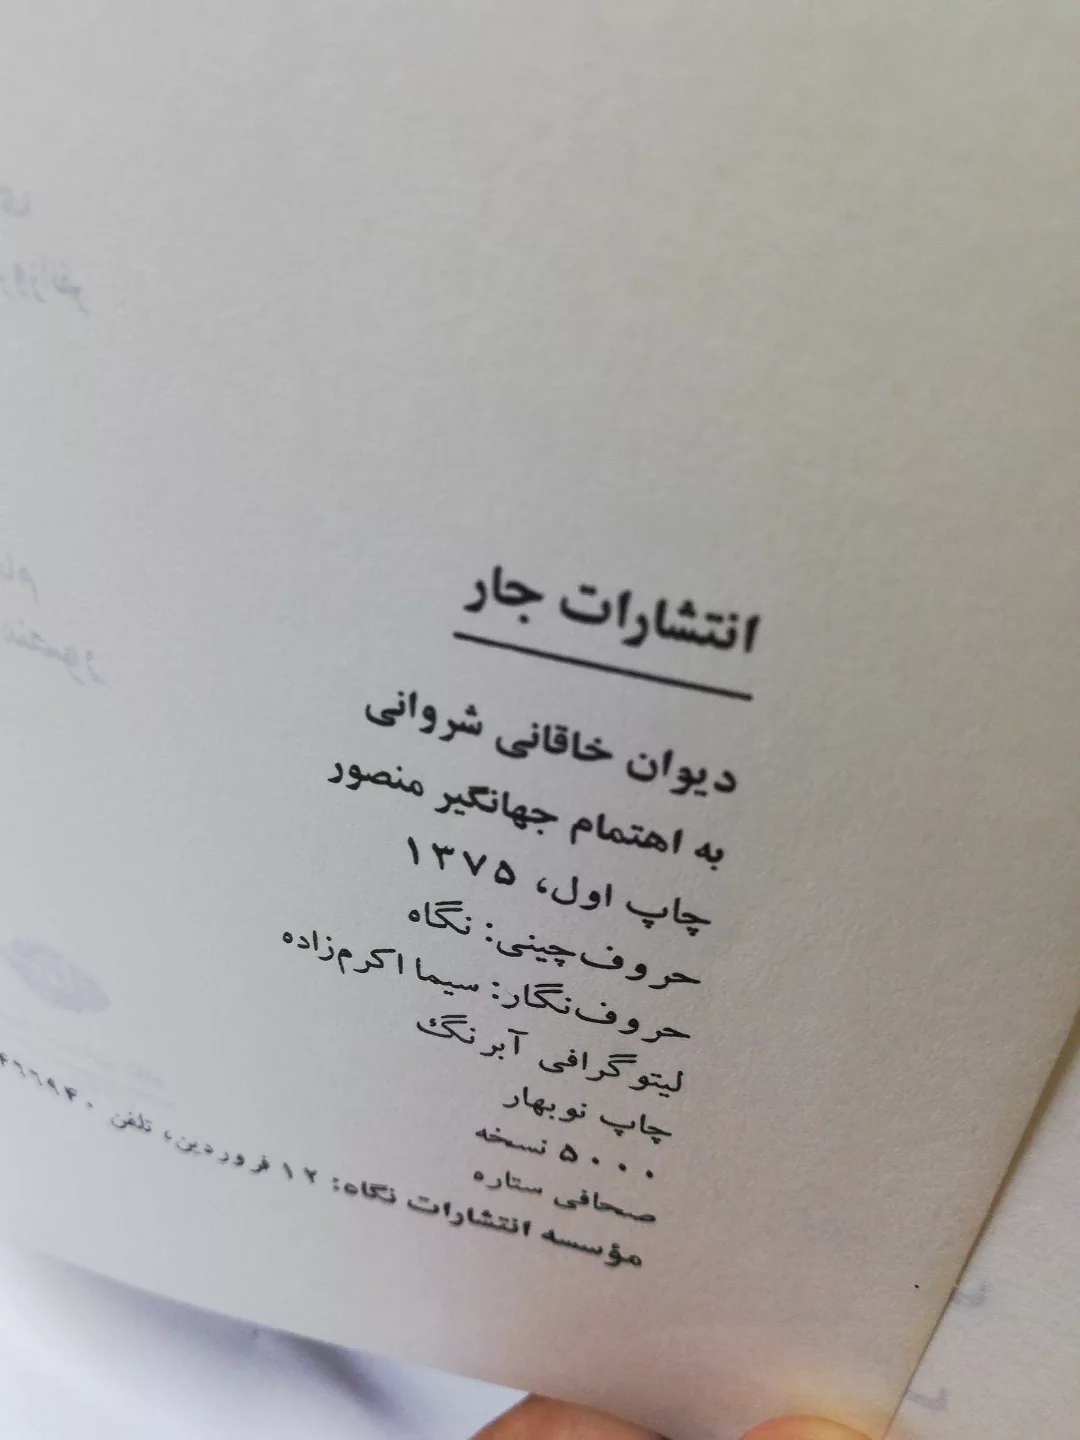 انتشارات جار
دیوان خاقانی شروانی
به اهتمام جهانگیر منصور
چاپ اول، ۱۳۷۵
حروف‌چینی: نگاه
حروف‌نگار: سیما اکرم‌زاده
لیتوگرافی آبرنگ
چاپ نوبهار
۵۰۰۰ نسخه
صحافی ستاره
مؤسسه انتشارات نگاه: ۱۲ فروردین، تلفن